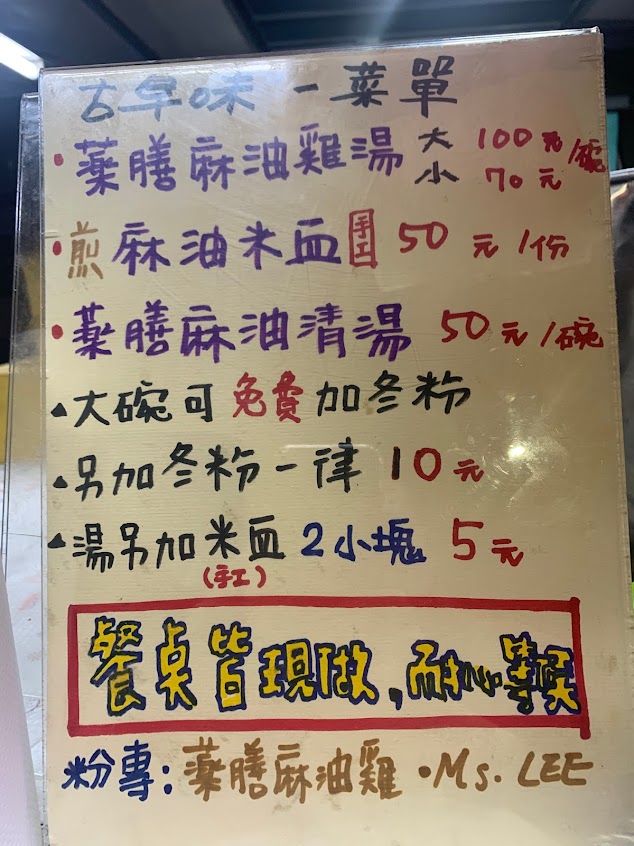 古早味-菜單
•藥膳麻油雞湯 大 100元/碗
小 70元
•煎麻油米血 手工 50元/份
•藥膳麻油清湯 50元/碗
▲大碗可免費加冬粉
▲另加冬粉一律10元
▲湯另加米血2小塊 5元
(手工)
餐桌皆現做,耐心等候
粉專:藥膳麻油雞•Ms. LEE